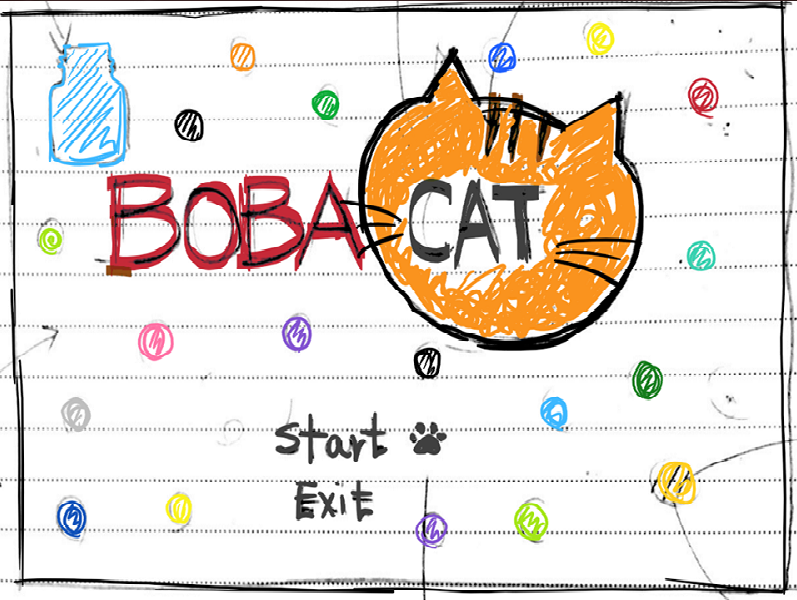 BOBA CAT
Start
Exit